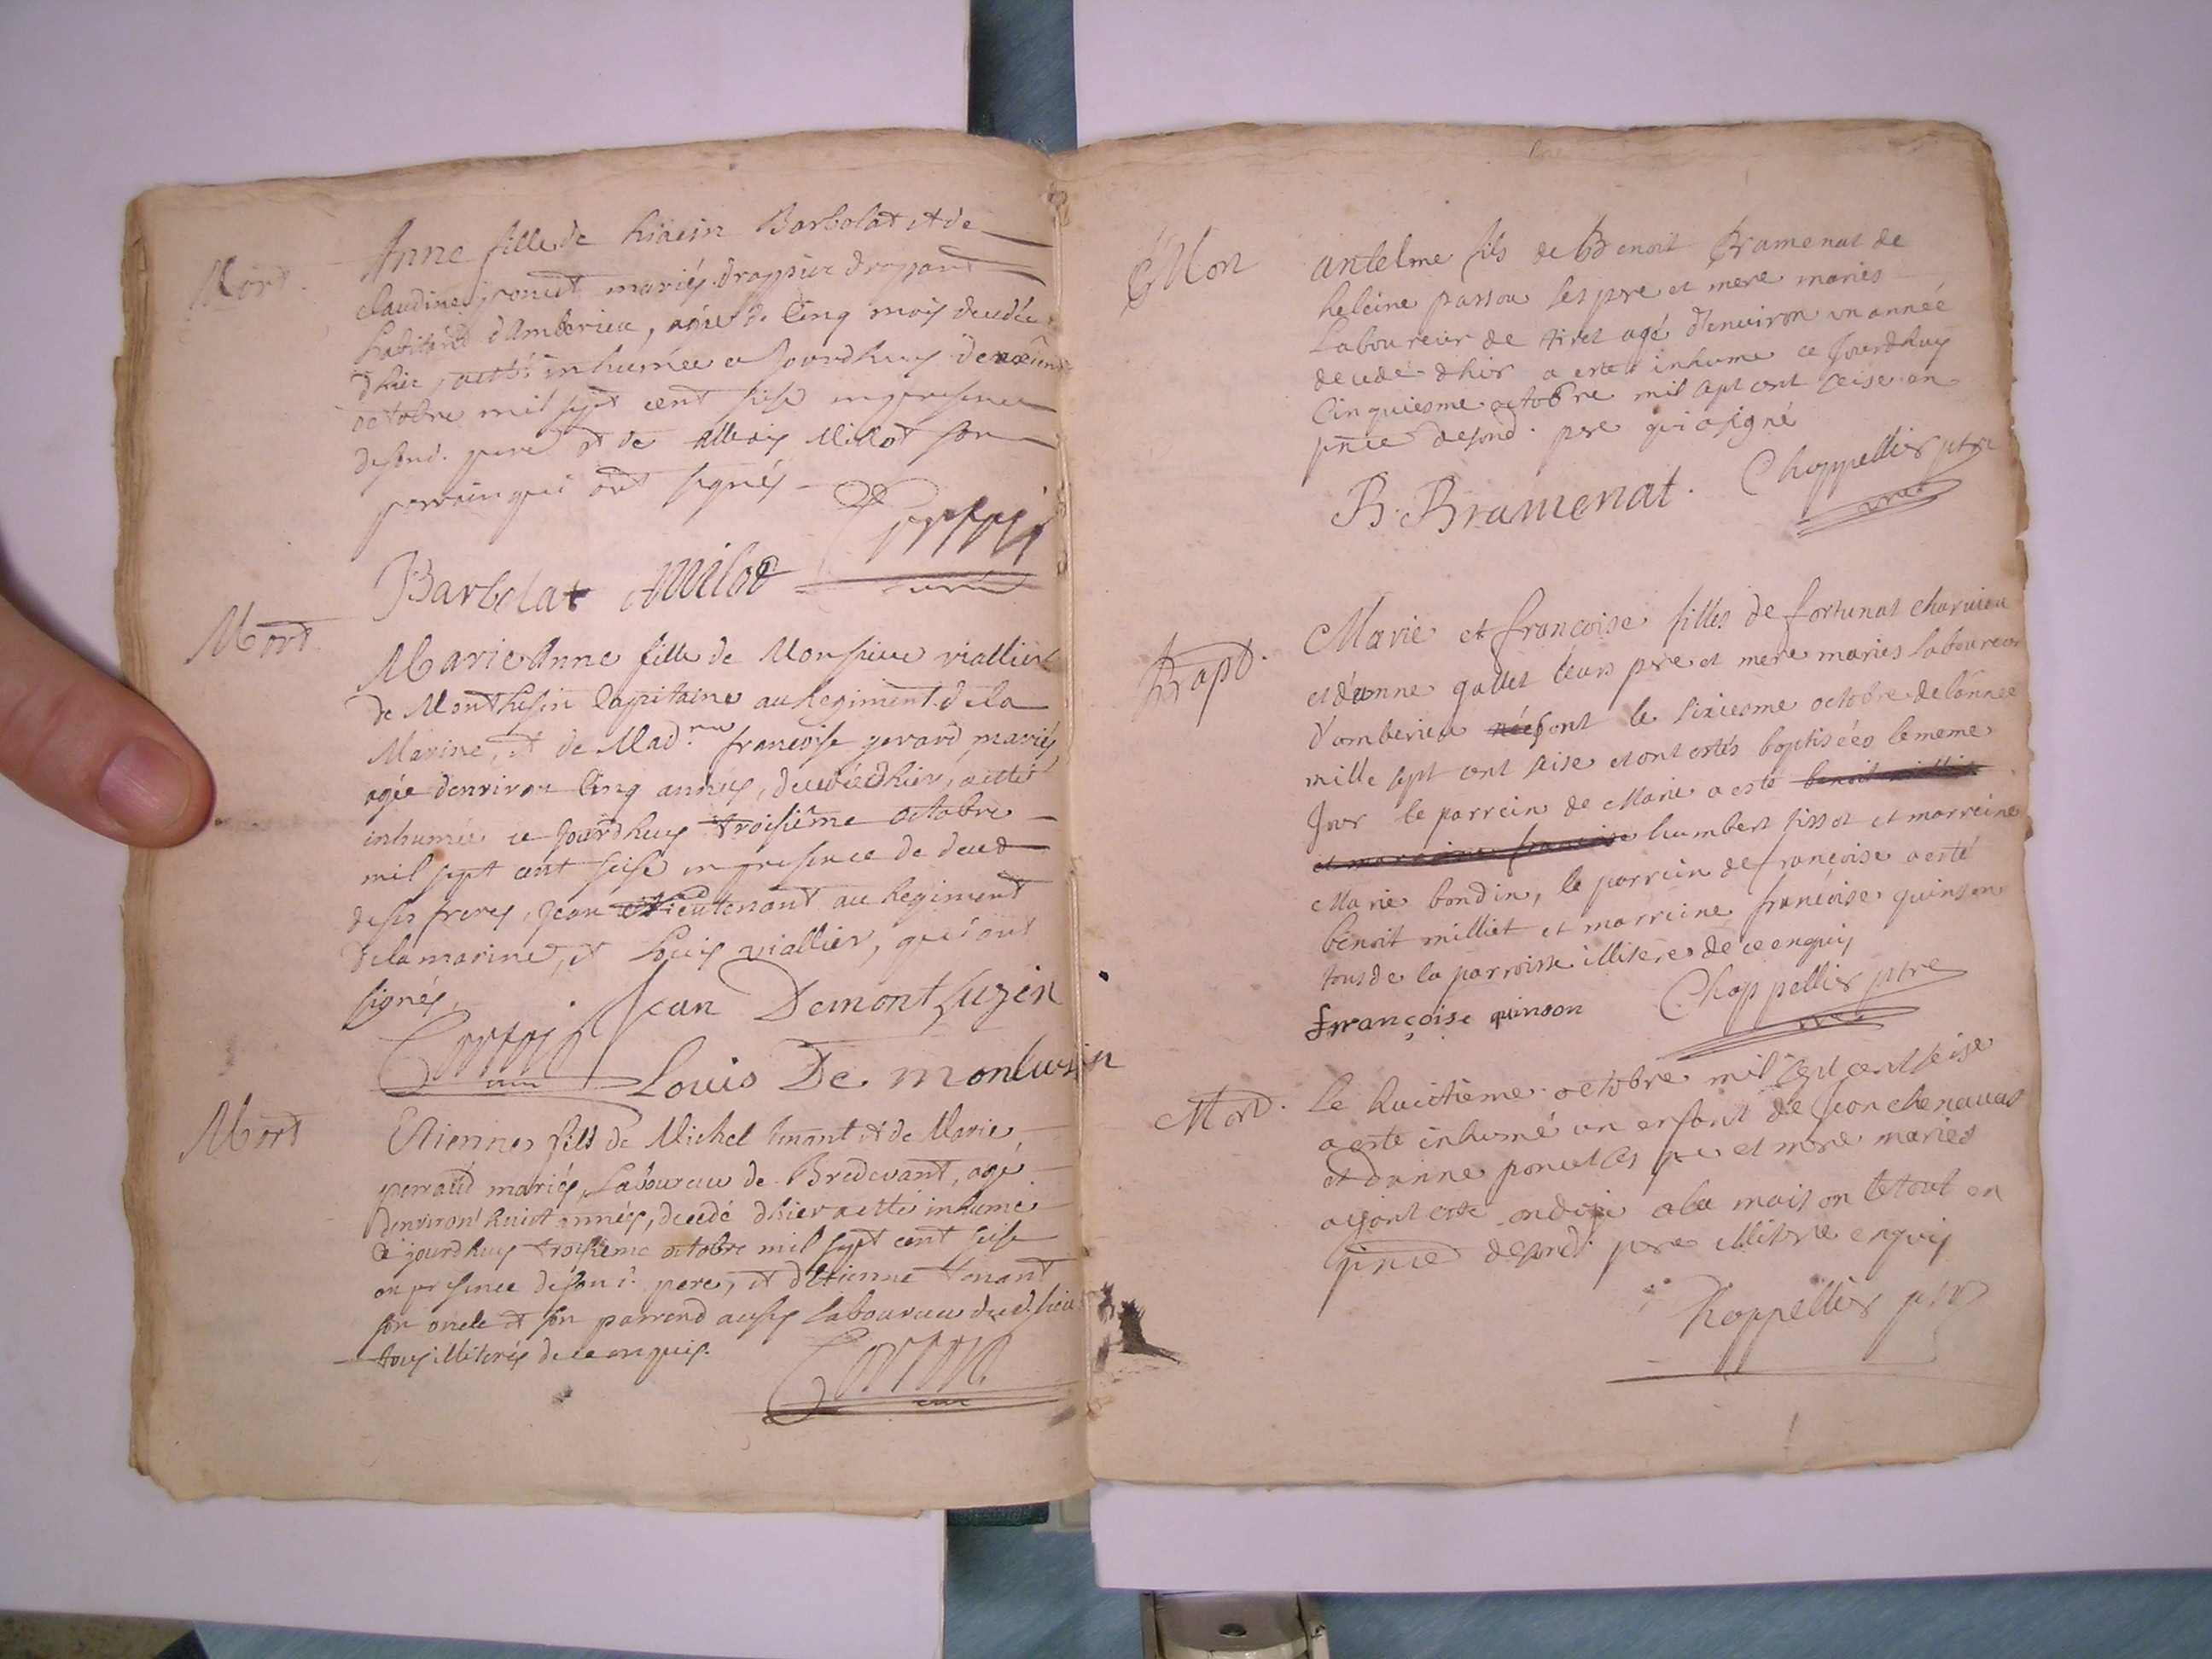 Mort.
Anne fille de hiacin Barbolat et de
claudine poncet mariés drappier drapant
habitant d'Amberieu, agée de Cinq mois decedée
d'hier, a etté inhumée ce Jourdhuy deuxième
octobre mil sept cent seise en presence
desond. pere et de Millot son
parrain qui ont signés
Barbolat Milot
curé
Mort
Marie Anne fille de Monsieur viallier
de Monthusin Capitaine au Regiment de la
Marine, et de Mad.^me francoise gerard mariés
agée denviron Cinq années, decedée dhier, a etté
inhumée ce Jourdhuy troisième octobre
mil sept cent seise en presence de deux
de ses freres, Jean Lieutenant au Regiment
de la marine, et Louis viallier, qui ont
signés.
Jean Demontluzin
curé
Louis De monluzin
Mort
Etienne fils de Michel tenant et de Marie
perraud mariés, Laboureur de Bredevant, agé
denviron huict années, decedé dhier a etté inhumé
ce jourdhuy troisième octobre mil sept cent seise
en presence de son d. pere, et d'Etienne tenant
son oncle et son parrend aussy laboureur dud. lieu
tous illiterés de ce enquis.
curé
Mort
antelme fils de Benoit Bramenat de
heleine passou ses pere et mere mariés
Laboureur de tiret agé d'environ un année
decedé dhier a esté inhume ce Jourdhuy
Cinquiesme octobre mil sept cent seise en
pnce desond. pere qui a signé
B. Bramenat. Chappellier ptre
vic.
Bapt.
Marie et francoise filles de fortunat charuieu
et d'anne gallet leurs pere et mere mariés laboureur
d'amberieu sont le sixiesme octobre de lannee
mille sept cent seise et ont estés baptisées le meme
Jour le parrein de Marie a esté benoit milliet
et marreine francoise humbert sissot et marreine
Marie bondin, le parrein de françoise a esté
benoit milliet et marreine françoise quinson
tous de la parroisse illiteres de ce enquis
françoise quinson Chappellier ptre
vic.
Mort.
Le huictieme octobre mil sept cent seise
a esté inhumé un enfant de jean chenavas
et d'anne poncet ses pere et mere mariés
ayant esté ondoié a la maison le tout en
pnce desond. pere illiteré enquis
Chappellier ptre